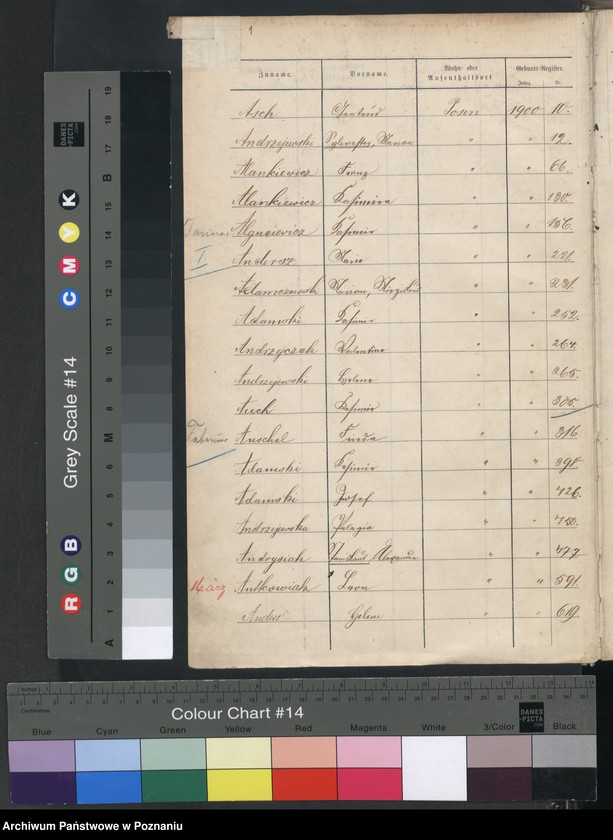 1
Zuname. Vorname. Wohn- oder Aufenthaltsort Geburts-Register.
Jahrg. Nr.
Asch Posen 1900 10.
Andrzejewski Sylvester, Marian " " 12.
Mankiewicz Franz " " 66.
Mankiewicz Kasimira " " 120.
Januar Kasimir " "
I Anders Marie " " 221.
Adamczewski Marian, " " 231.
Adamski Kasimir " " 252.
Andrzejczak Valentin " " 264.
Andrzejewski Helene " " 265.
Auch Kasimir " " 305.
Februar Auschel " " 316.
Adamski Kasimir " " 398.
Adamski Josef " " 426.
Andrzejewska Pelagia " " 450.
Andrysiak Stanislaus, Alexander " " 477.
März Antkowiak Leon " " 591.
Anders Helene " " 619.
DANES-PICTA
Grey Scale #14
R G B C M Y K
A 1 2 3 4 5 6 M 8 9 10 11 12 13 14 15 B 17 18 19
Colour Chart #14
Blue Cyan Green Yellow Red Magenta White 3/Color Black
DANES-PICTA
Archiwum Państwowe w Poznaniu